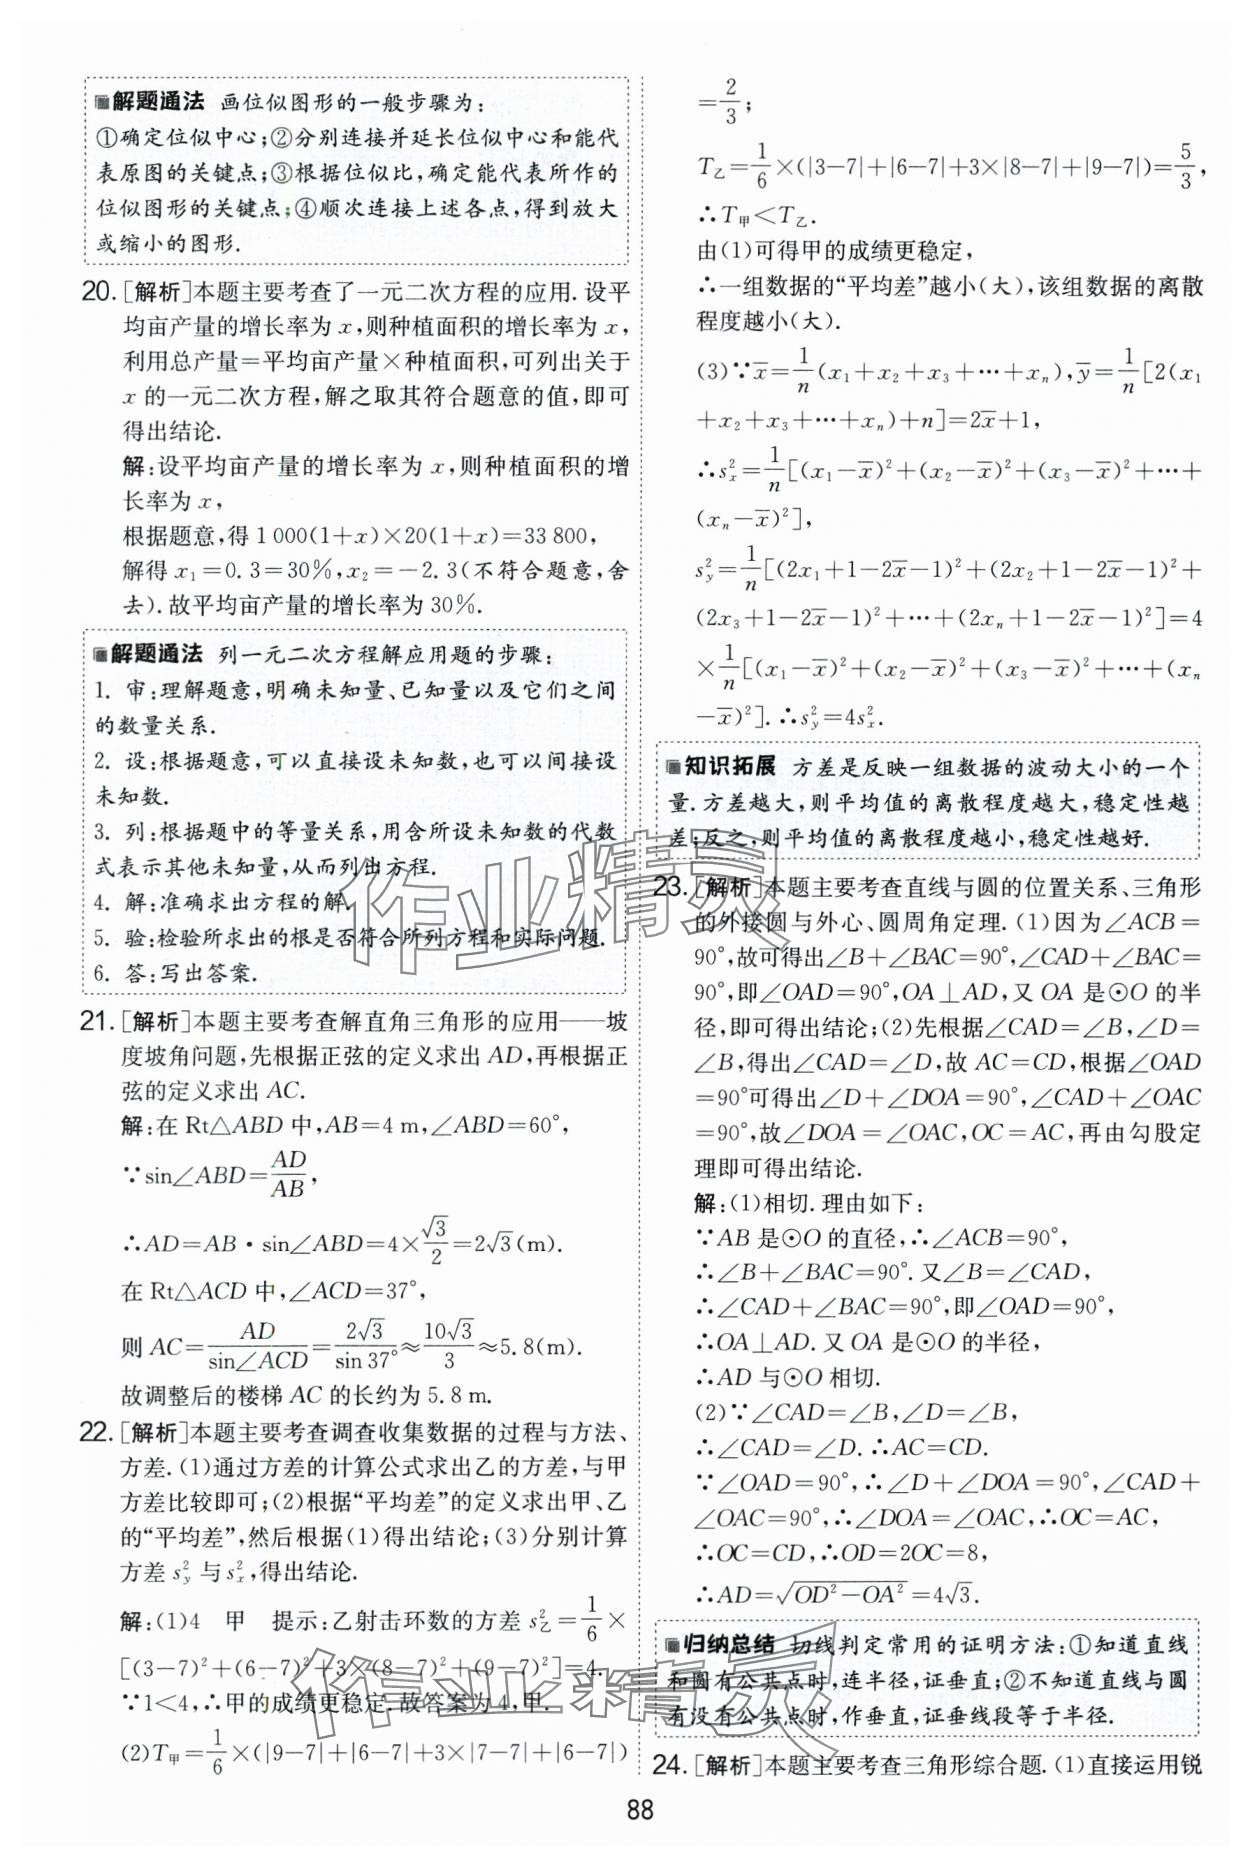 解题通法 画位似图形的一般步骤为:
①确定位似中心;②分别连接并延长位似中心和能代
表原图的关键点;③根据位似比,确定能代表所作的
位似图形的关键点;④顺次连接上述各点,得到放大
或缩小的图形.
20. [解析]本题主要考查了一元二次方程的应用.设平
均亩产量的增长率为 x,则种植面积的增长率为 x,
利用总产量=平均亩产量×种植面积,可列出关于
x 的一元二次方程,解之取其符合题意的值,即可
得出结论.
解:设平均亩产量的增长率为 x,则种植面积的增
长率为 x,
根据题意,得 1 000(1+x)×20(1+x)=33 800,
解得 x₁=0.3=30%,x₂=-2.3(不符合题意,舍
去).故平均亩产量的增长率为 30%.
解题通法 列一元二次方程解应用题的步骤:
1. 审:理解题意,明确未知量、已知量以及它们之间
的数量关系.
2. 设:根据题意,可以直接设未知数,也可以间接设
未知数.
3. 列:根据题中的等量关系,用含所设未知数的代数
式表示其他未知量,从而列出方程.
4. 解:准确求出方程的解.
5. 验:检验所求出的根是否符合所列方程和实际问题.
6. 答:写出答案.
21. [解析]本题主要考查解直角三角形的应用——坡
度坡角问题,先根据正弦的定义求出 AD,再根据正
弦的定义求出 AC.
解:在 Rt△ABD 中,AB=4 m,∠ABD=60°,
∵sin∠ABD=AD/AB,
∴AD=AB·sin∠ABD=4×√3/2=2√3(m).
在 Rt△ACD 中,∠ACD=37°,
则 AC=AD/sin∠ACD=2√3/sin 37°≈10√3/3≈5.8(m).
故调整后的楼梯 AC 的长约为 5.8 m.
22. [解析]本题主要考查调查收集数据的过程与方法、
方差.(1)通过方差的计算公式求出乙的方差,与甲
方差比较即可;(2)根据“平均差”的定义求出甲、乙
的“平均差”,然后根据(1)得出结论;(3)分别计算
方差 s²y 与 s²x,得出结论.
解:(1)4 甲 提示:乙射击环数的方差 s²乙=1/6×
[(3-7)²+(6-7)²+3×(8-7)²+(9-7)²]=4.
∵1<4,∴甲的成绩更稳定.故答案为 4,甲.
(2)T甲=1/6×(|9-7|+|6-7|+3×|7-7|+|6-7|)
=2/3;
T乙=1/6×(|3-7|+|6-7|+3×|8-7|+|9-7|)=5/3,
∴T甲<T乙.
由(1)可得甲的成绩更稳定,
∴一组数据的“平均差”越小(大),该组数据的离散
程度越小(大).
(3)∵x̄=1/n(x₁+x₂+x₃+…+xₙ),ȳ=1/n[2(x₁
+x₂+x₃+…+xₙ)+n]=2x̄+1,
∴s²x=1/n[(x₁-x̄)²+(x₂-x̄)²+(x₃-x̄)²+…+
(xₙ-x̄)²],
s²y=1/n[(2x₁+1-2x̄-1)²+(2x₂+1-2x̄-1)²+
(2x₃+1-2x̄-1)²+…+(2xₙ+1-2x̄-1)²]=4
×1/n[(x₁-x̄)²+(x₂-x̄)²+(x₃-x̄)²+…+(xₙ
-x̄)²].∴s²y=4s²x.
知识拓展 方差是反映一组数据的波动大小的一个
量.方差越大,则平均值的离散程度越大,稳定性越
差;反之,则平均值的离散程度越小,稳定性越好.
23. [解析]本题主要考查直线与圆的位置关系、三角形
的外接圆与外心、圆周角定理.(1)因为∠ACB=
90°,故可得出∠B+∠BAC=90°,∠CAD+∠BAC=
90°,即∠OAD=90°,OA⊥AD,又 OA 是⊙O 的半
径,即可得出结论;(2)先根据∠CAD=∠B,∠D=
∠B,得出∠CAD=∠D,故 AC=CD,根据∠OAD
=90°可得出∠D+∠DOA=90°,∠CAD+∠OAC
=90°,故∠DOA=∠OAC,OC=AC,再由勾股定
理即可得出结论.
解:(1)相切.理由如下:
∵AB 是⊙O 的直径,∴∠ACB=90°,
∴∠B+∠BAC=90°.又∠B=∠CAD,
∴∠CAD+∠BAC=90°,即∠OAD=90°,
∴OA⊥AD.又 OA 是⊙O 的半径,
∴AD 与⊙O 相切.
(2)∵∠CAD=∠B,∠D=∠B,
∴∠CAD=∠D.∴AC=CD.
∵∠OAD=90°,∴∠D+∠DOA=90°,∠CAD+
∠OAC=90°,∴∠DOA=∠OAC,∴OC=AC,
∴OC=CD,∴OD=2OC=8,
∴AD=√(OD²-OA²)=4√3.
归纳总结 切线判定常用的证明方法:①知道直线
和圆有公共点时,连半径,证垂直;②不知道直线与圆
有没有公共点时,作垂直,证垂线段等于半径.
24. [解析]本题主要考查三角形综合题.(1)直接运用锐
88
作业精灵
作业精灵